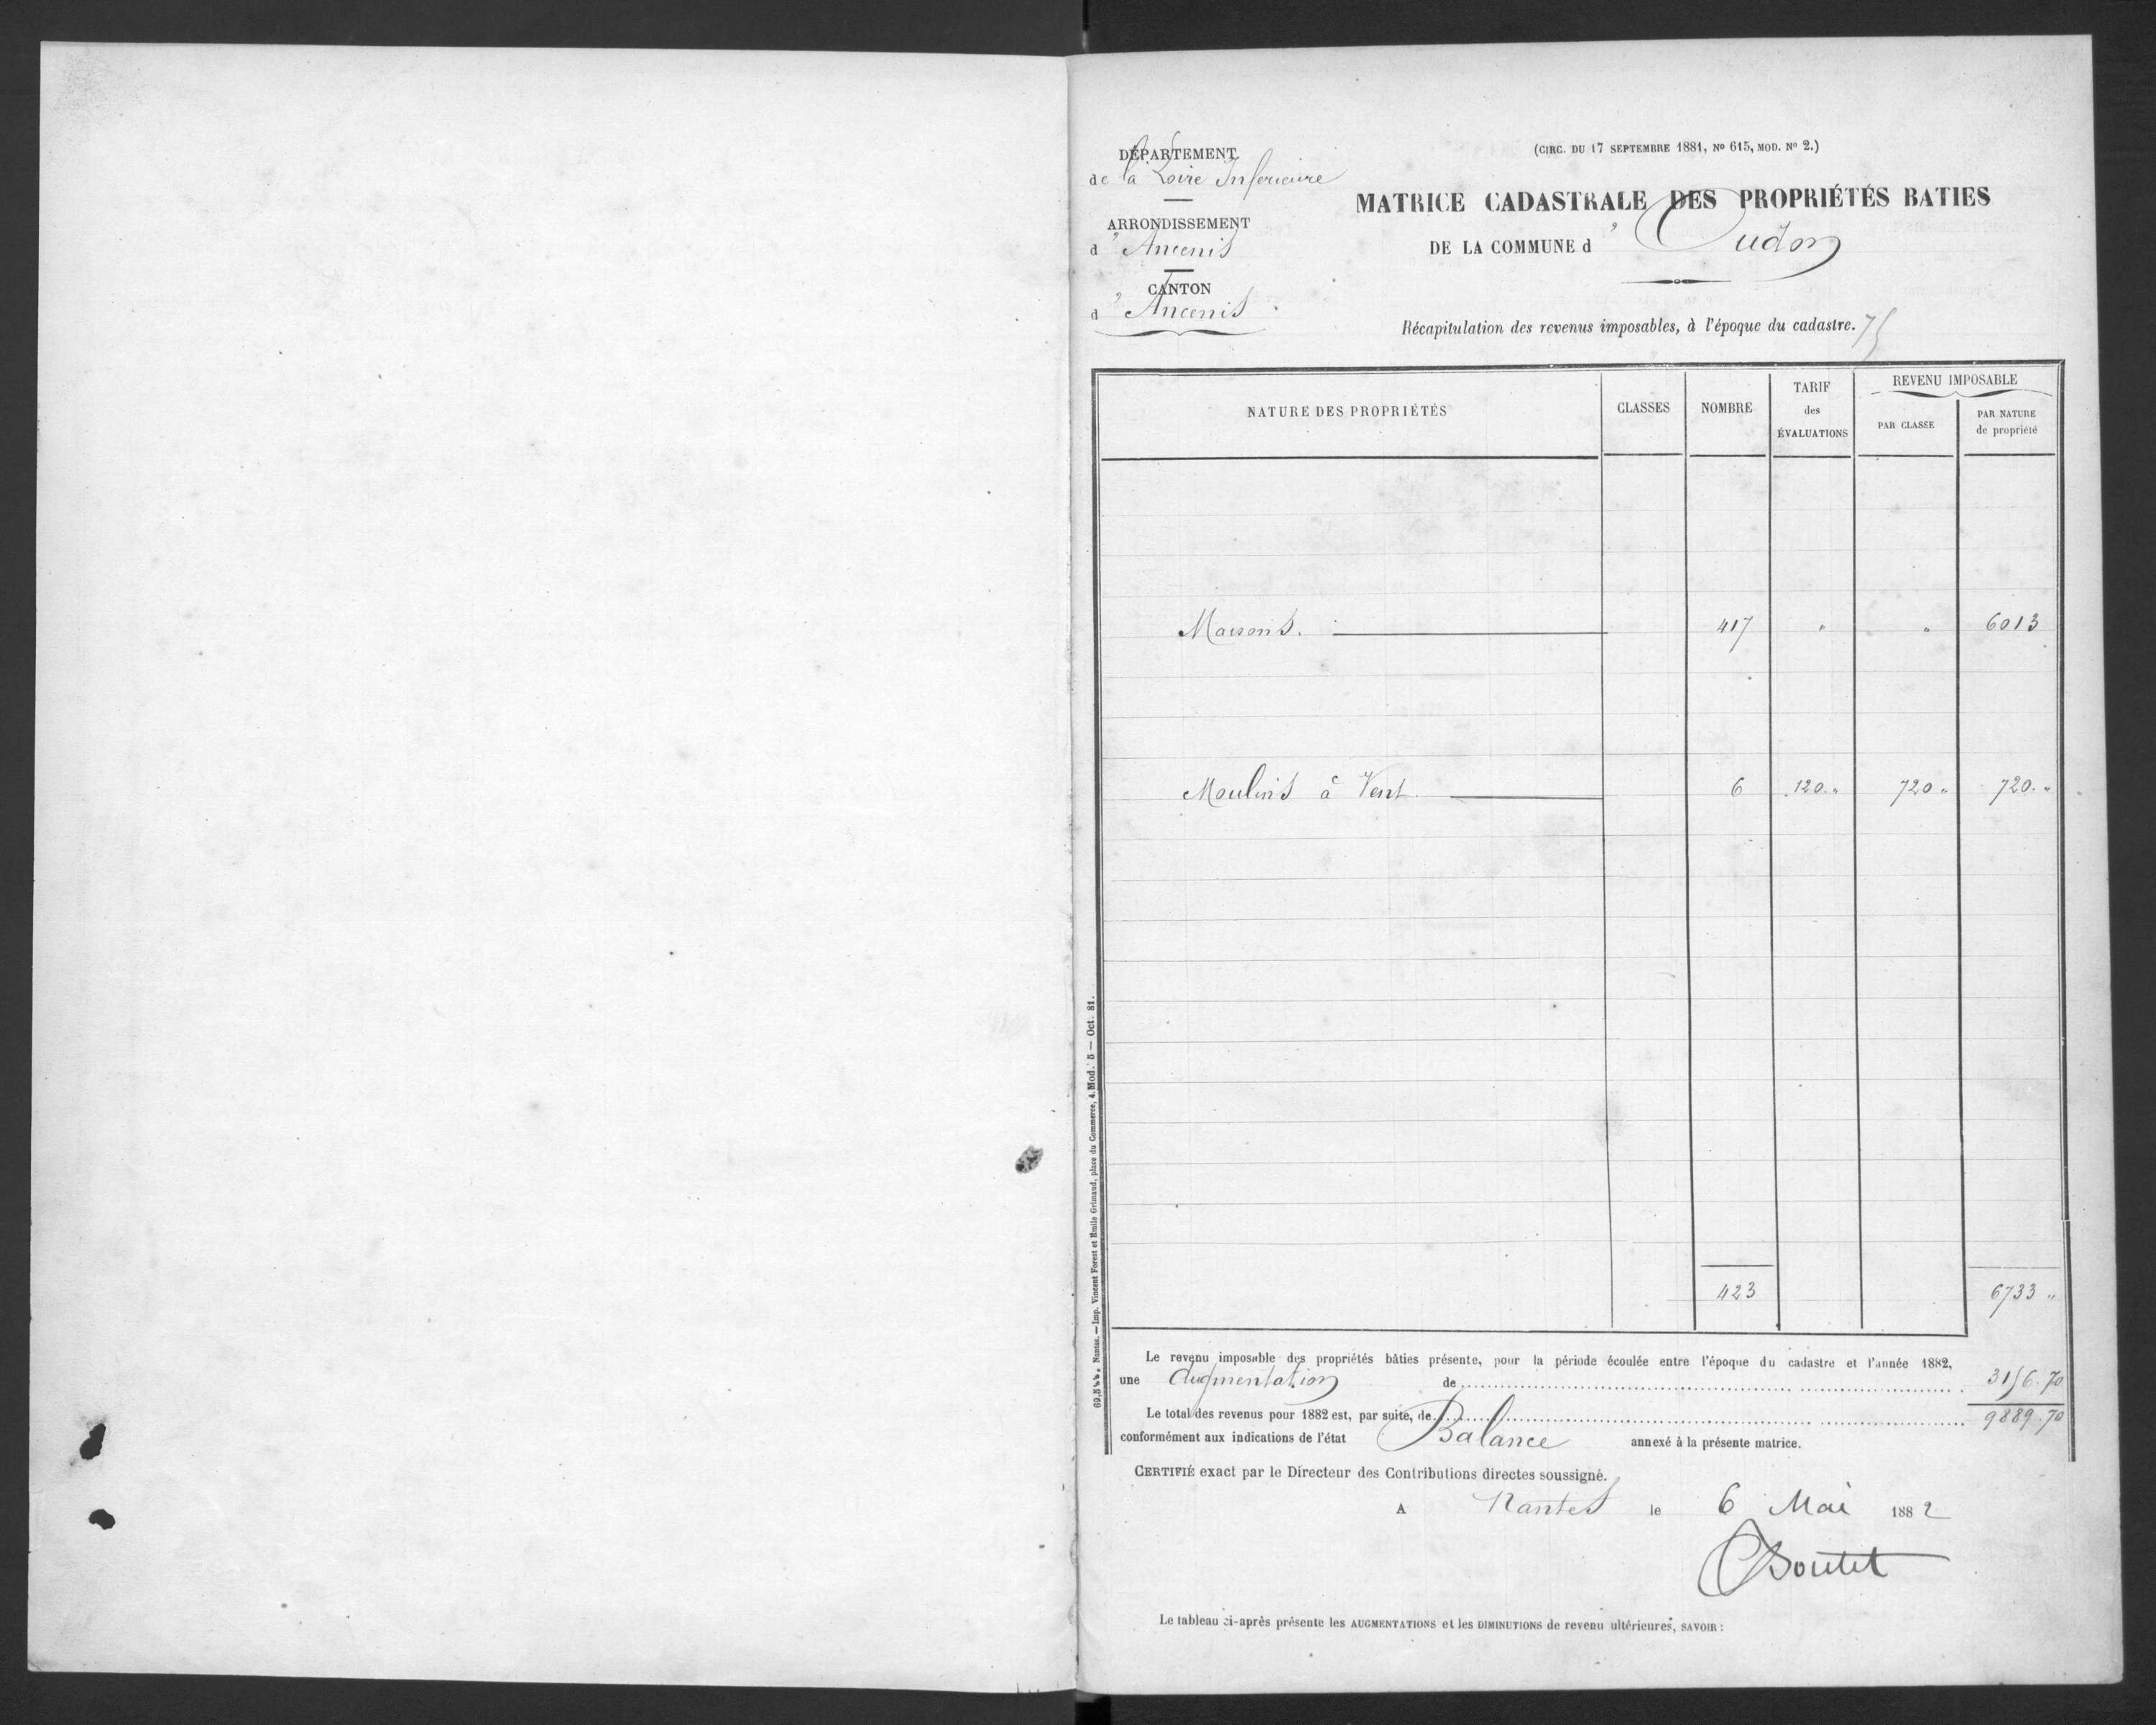 DÉPARTEMENT
de la Loire Inferieure
ARRONDISSEMENT
d'Ancenis
CANTON
d'Ancenis
(CIRC. DU 17 SEPTEMBRE 1881, No 615, MOD. No 2.)
MATRICE CADASTRALE DES PROPRIÉTÉS BATIES
DE LA COMMUNE d'Oudon
Récapitulation des revenus imposables, à l'époque du cadastre. 75
NATURE DES PROPRIÉTÉS
CLASSES
NOMBRE
TARIF
des
ÉVALUATIONS
REVENU IMPOSABLE
PAR CLASSE
PAR NATURE
de propriété
Maisons. 417 " " 6013
Moulins à Vent. 6 120. " 720 " 720. "
423 6733 "
Le revenu imposable des propriétés bâties présente, pour la période écoulée entre l'époque du cadastre et l'année 1882,
une Augmentation de 3156.70
Le total des revenus pour 1882 est, par suite, de 9889.70
conformément aux indications de l'état Balance annexé à la présente matrice.
CERTIFIÉ exact par le Directeur des Contributions directes soussigné.
A Nantes le 6 Mai 1882
Boutet
Le tableau ci-après présente les AUGMENTATIONS et les DIMINUTIONS de revenu ultérieures, SAVOIR :
Nantes. — Imp. Vincent Forest et Emile Grimaud, place du Commerce, 4. Mod. 5 — Oct. 81.